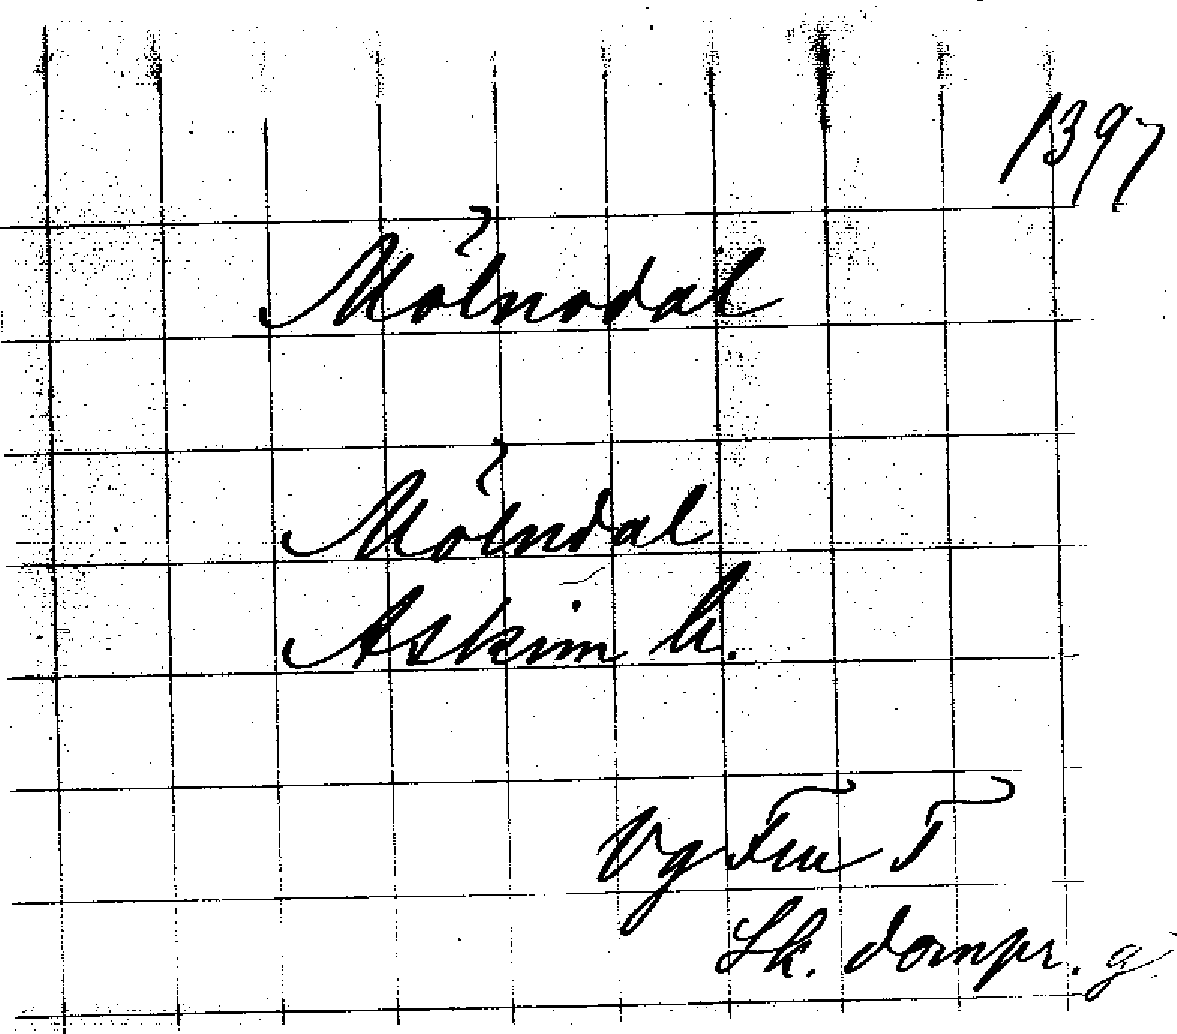 1397
Mölnodal
Mölndal
Askim h.
Vg Fru T
Sk. dompr. g